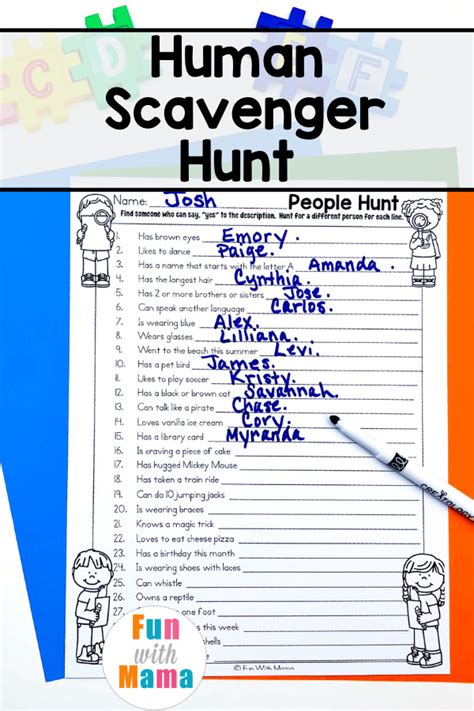 Human
Scavenger
Hunt
Name: Josh People Hunt
Find someone who can say, "yes" to the description. Hunt for a different person for each line.
1. Has brown eyes Emory.
2. Likes to dance Paige.
3. Has a name that starts with the letter A Amanda.
4. Has the longest hair Cynthia.
5. Has 2 or more brothers or sisters Jose.
6. Can speak another language Carlos.
7. Is wearing blue Alex.
8. Wears glasses Lilliana.
9. Went to the beach this summer Levi.
10. Has a pet bird James.
11. Likes to play soccer Kristy.
12. Has a black or brown cat Savannah.
13. Can talk like a pirate Chase.
14. Loves vanilla ice cream Cory.
15. Has a library card Myranda
16. Is craving a piece of cake
17. Has hugged Mickey Mouse
18. Has taken a train ride
19. Can do 10 jumping jacks
20. Is wearing braces
21. Knows a magic trick
22. Loves to eat cheese pizza
23. Has a birthday this month
24. Is wearing shoes with laces
25. Can whistle
26. Owns a reptile
27. one foot
this week
shells
© Fun With Mama
Fun
with
Mama